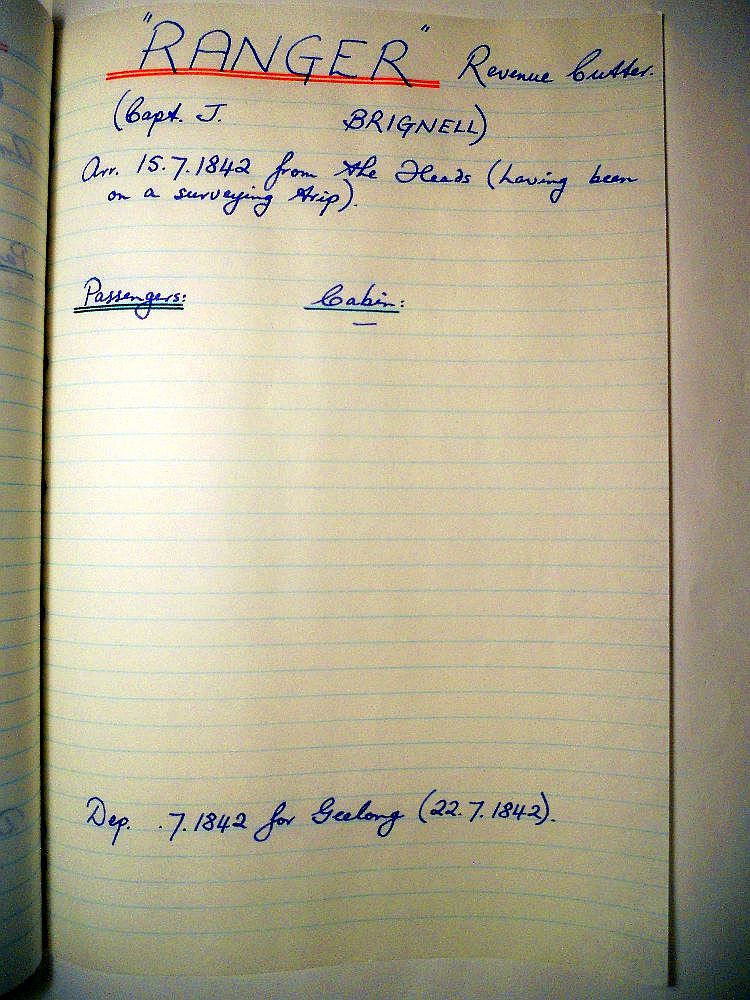 "RANGER" Revenue Cutter.
(Capt. J. BRIGNELL)
Arr. 15.7.1842 from the Heads (having been
on a surveying trip).
Passengers: Cabin:
—
Dep. .7.1842 for Geelong (22.7.1842).